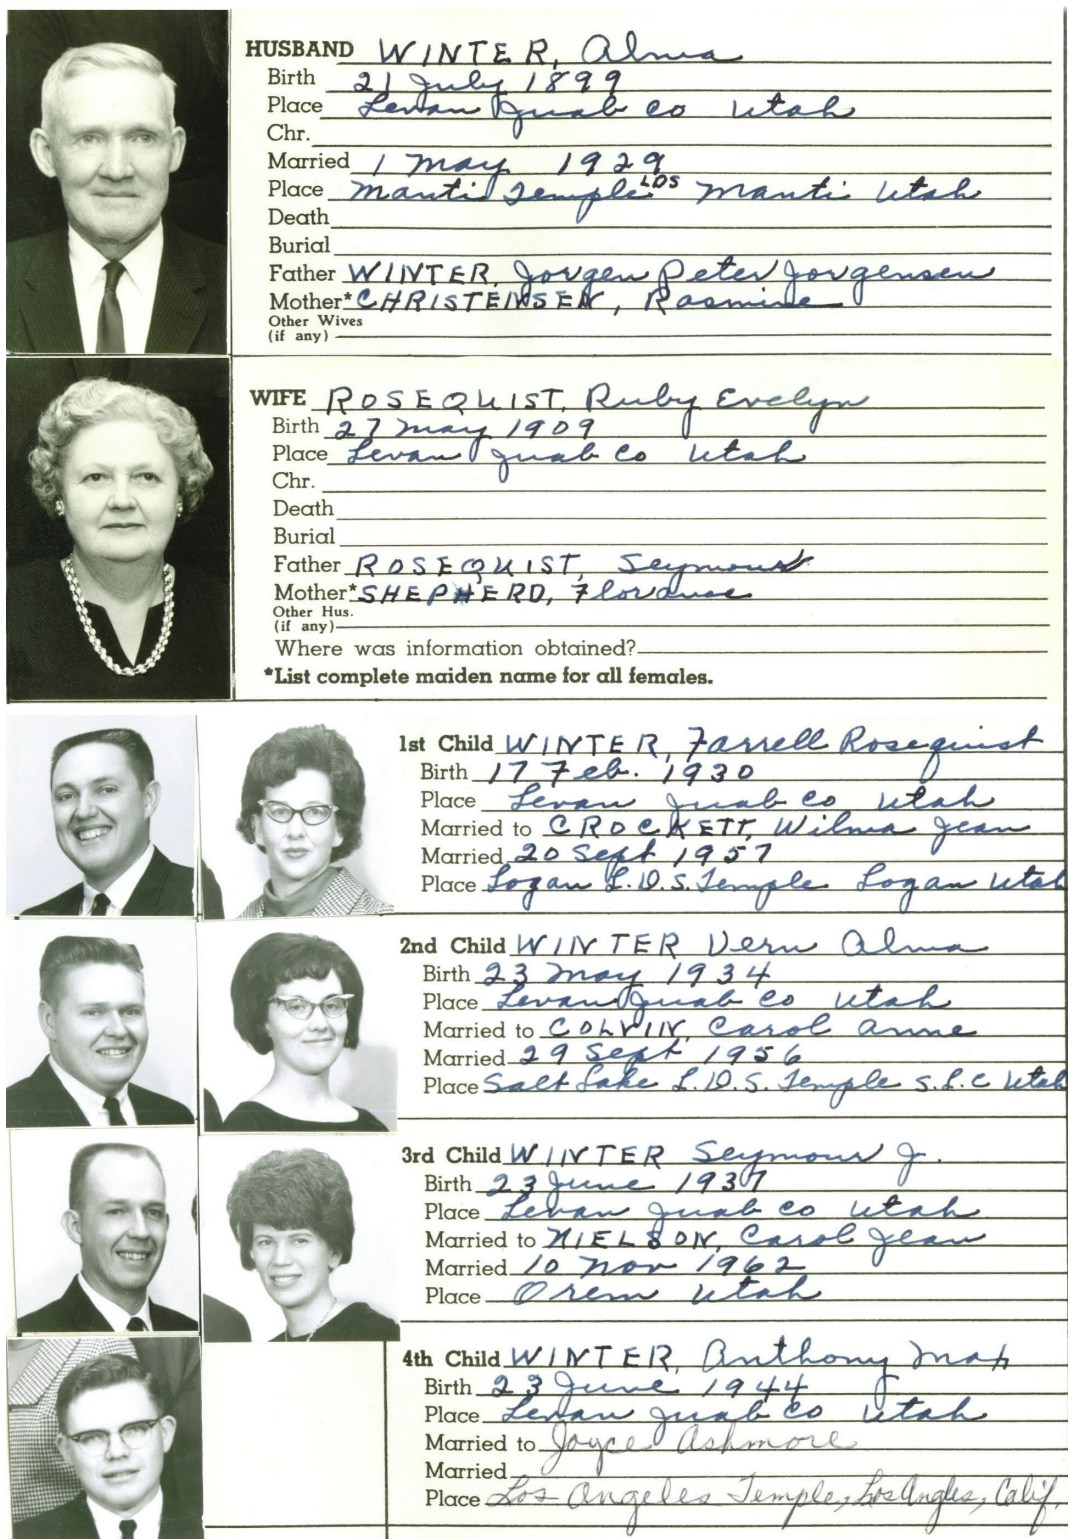 HUSBAND WINTER, Alma
Birth 21 July 1899
Place Levan Juab Co Utah
Chr.
Married 1 May 1929
Place Manti Temple LDS Manti Utah
Death
Burial
Father WINTER, Jorgen Peter Jorgensen
Mother* CHRISTENSEN, Rasmine
Other Wives
(if any)
WIFE ROSEQUIST, Ruby Evelyn
Birth 27 May 1909
Place Levan Juab Co Utah
Chr.
Death
Burial
Father ROSEQUIST, Seymour
Mother* SHEPHERD, Florance
Other Hus.
(if any)
Where was information obtained?
*List complete maiden name for all females.
1st Child WINTER, Farrell Rosequist
Birth 17 Feb. 1930
Place Levan Juab Co Utah
Married to CROCKETT, Wilma Jean
Married 20 Sept 1957
Place Logan L.D.S. Temple Logan Utah
2nd Child WINTER Vern Alma
Birth 23 May 1934
Place Levan Juab Co Utah
Married to COLVIN, Carol Anne
Married 29 Sept 1956
Place Salt Lake L.D.S. Temple S.L.C Utah
3rd Child WINTER Seymour J.
Birth 23 June 1937
Place Levan Juab Co Utah
Married to NIELSON, Carol Jean
Married 10 Nov 1962
Place Orem Utah
4th Child WINTER, Anthony Max
Birth 23 June 1944
Place Levan Juab Co Utah
Married to Joyce Ashmore
Married
Place Los Angeles Temple, Los Angles, Calif.